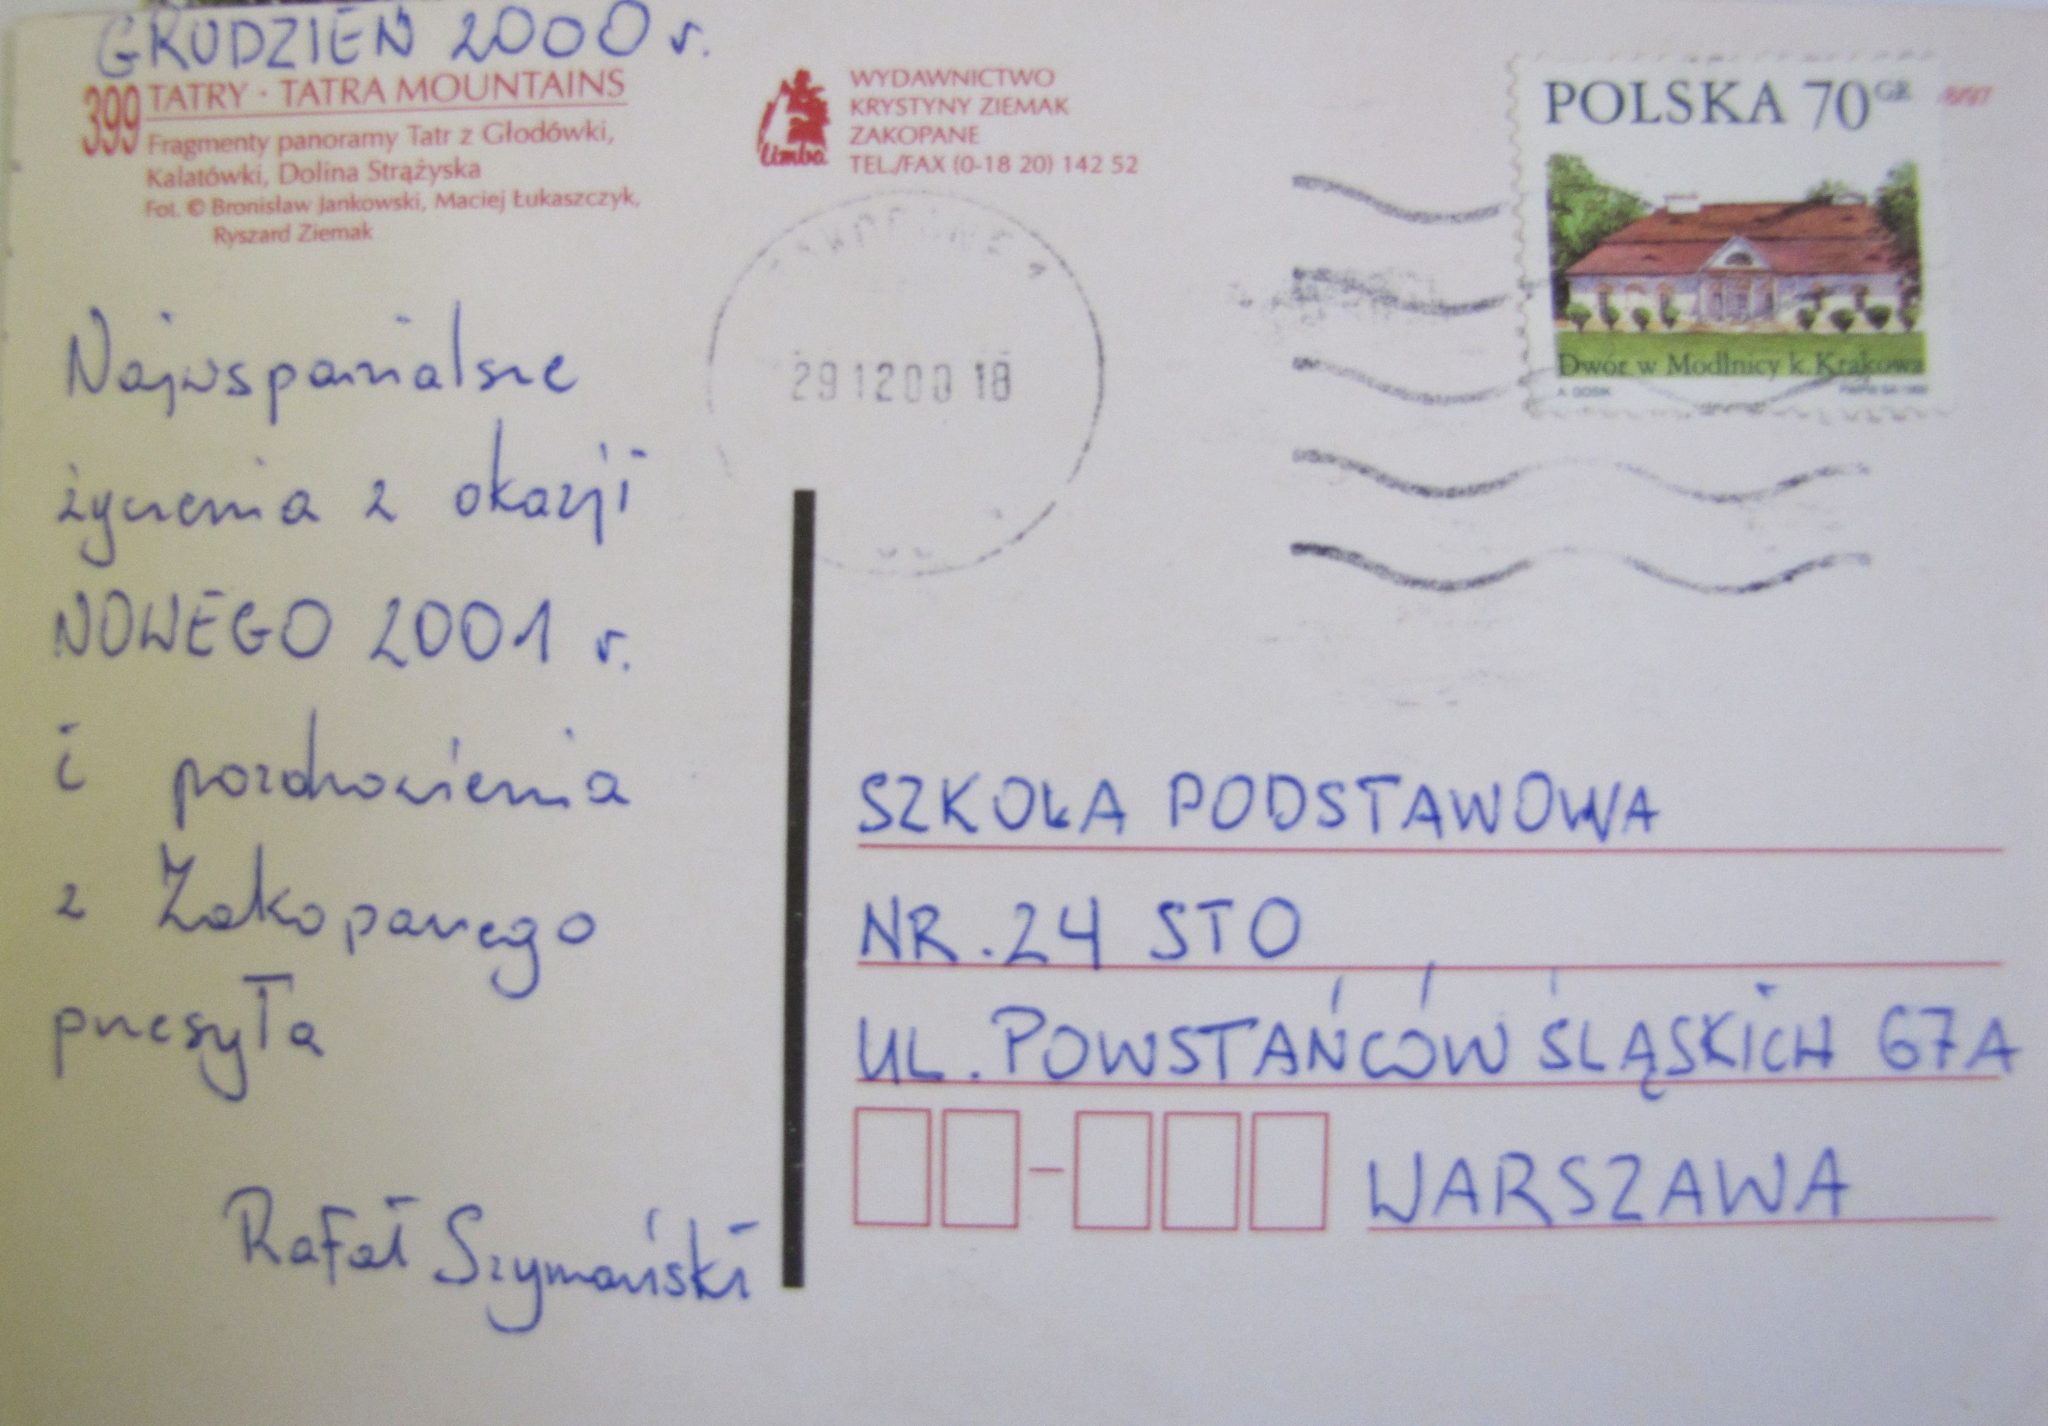 GRUDZIEŃ 2000 r.
399 TATRY · TATRA MOUNTAINS
Fragmenty panoramy Tatr z Głodówki,
Kalatówki, Dolina Strążyska
Fot. © Bronisław Jankowski, Maciej Łukaszczyk,
Ryszard Ziemak
limba
WYDAWNICTWO
KRYSTYNY ZIEMAK
ZAKOPANE
TEL./FAX (0-18 20) 142 52
POLSKA 70 GR
Dwór w Modlnicy k. Krakowa
29 12 00 18
Najwspanialsze
życzenia z okazji
NOWEGO 2001 r.
i pozdrowienia
z Zakopanego
przesyła
Rafał Szymański
SZKOŁA PODSTAWOWA
NR. 24 STO
UL. POWSTAŃCÓW ŚLĄSKICH 67A
WARSZAWA